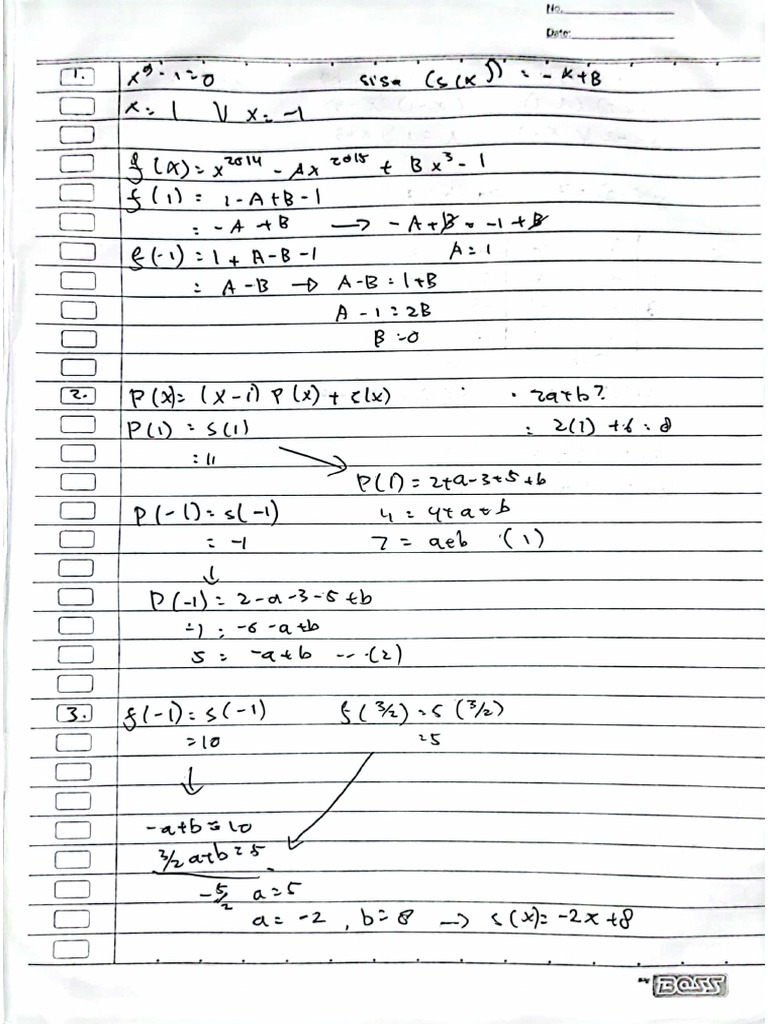 No.
Date:
1. x² - 1 = 0 sisa (s(x)) = -x+B
x = 1 V x = -1
f(x) = x^2014 - Ax^2015 + Bx³ - 1
f(1) = 1 - A + B - 1
= -A + B → -A + B = -1 + B
f(-1) = 1 + A - B - 1 A = 1
= A - B → A - B = 1 + B
A - 1 = 2B
B = 0
2. P(x) = (x - 1) P(x) + s(x) . 2a+b?
P(1) = s(1) = 2(1) + 6 = 8
= 11
P(1) = 2+a-3+5+b
P(-1) = s(-1) 11 = 4+a+b
= -1 7 = a+b (1)
↓
P(-1) = 2-a-3-5+b
-1 = -6-a+b
5 = -a+b ... (2)
3. f(-1) = s(-1) f(3/2) = s(3/2)
= 10 = 5
↓
-a+b = 10
3/2 a+b = 5 -
-5/2 a = 5
a = -2 , b = 8 → s(x) = -2x+8
by BOSS